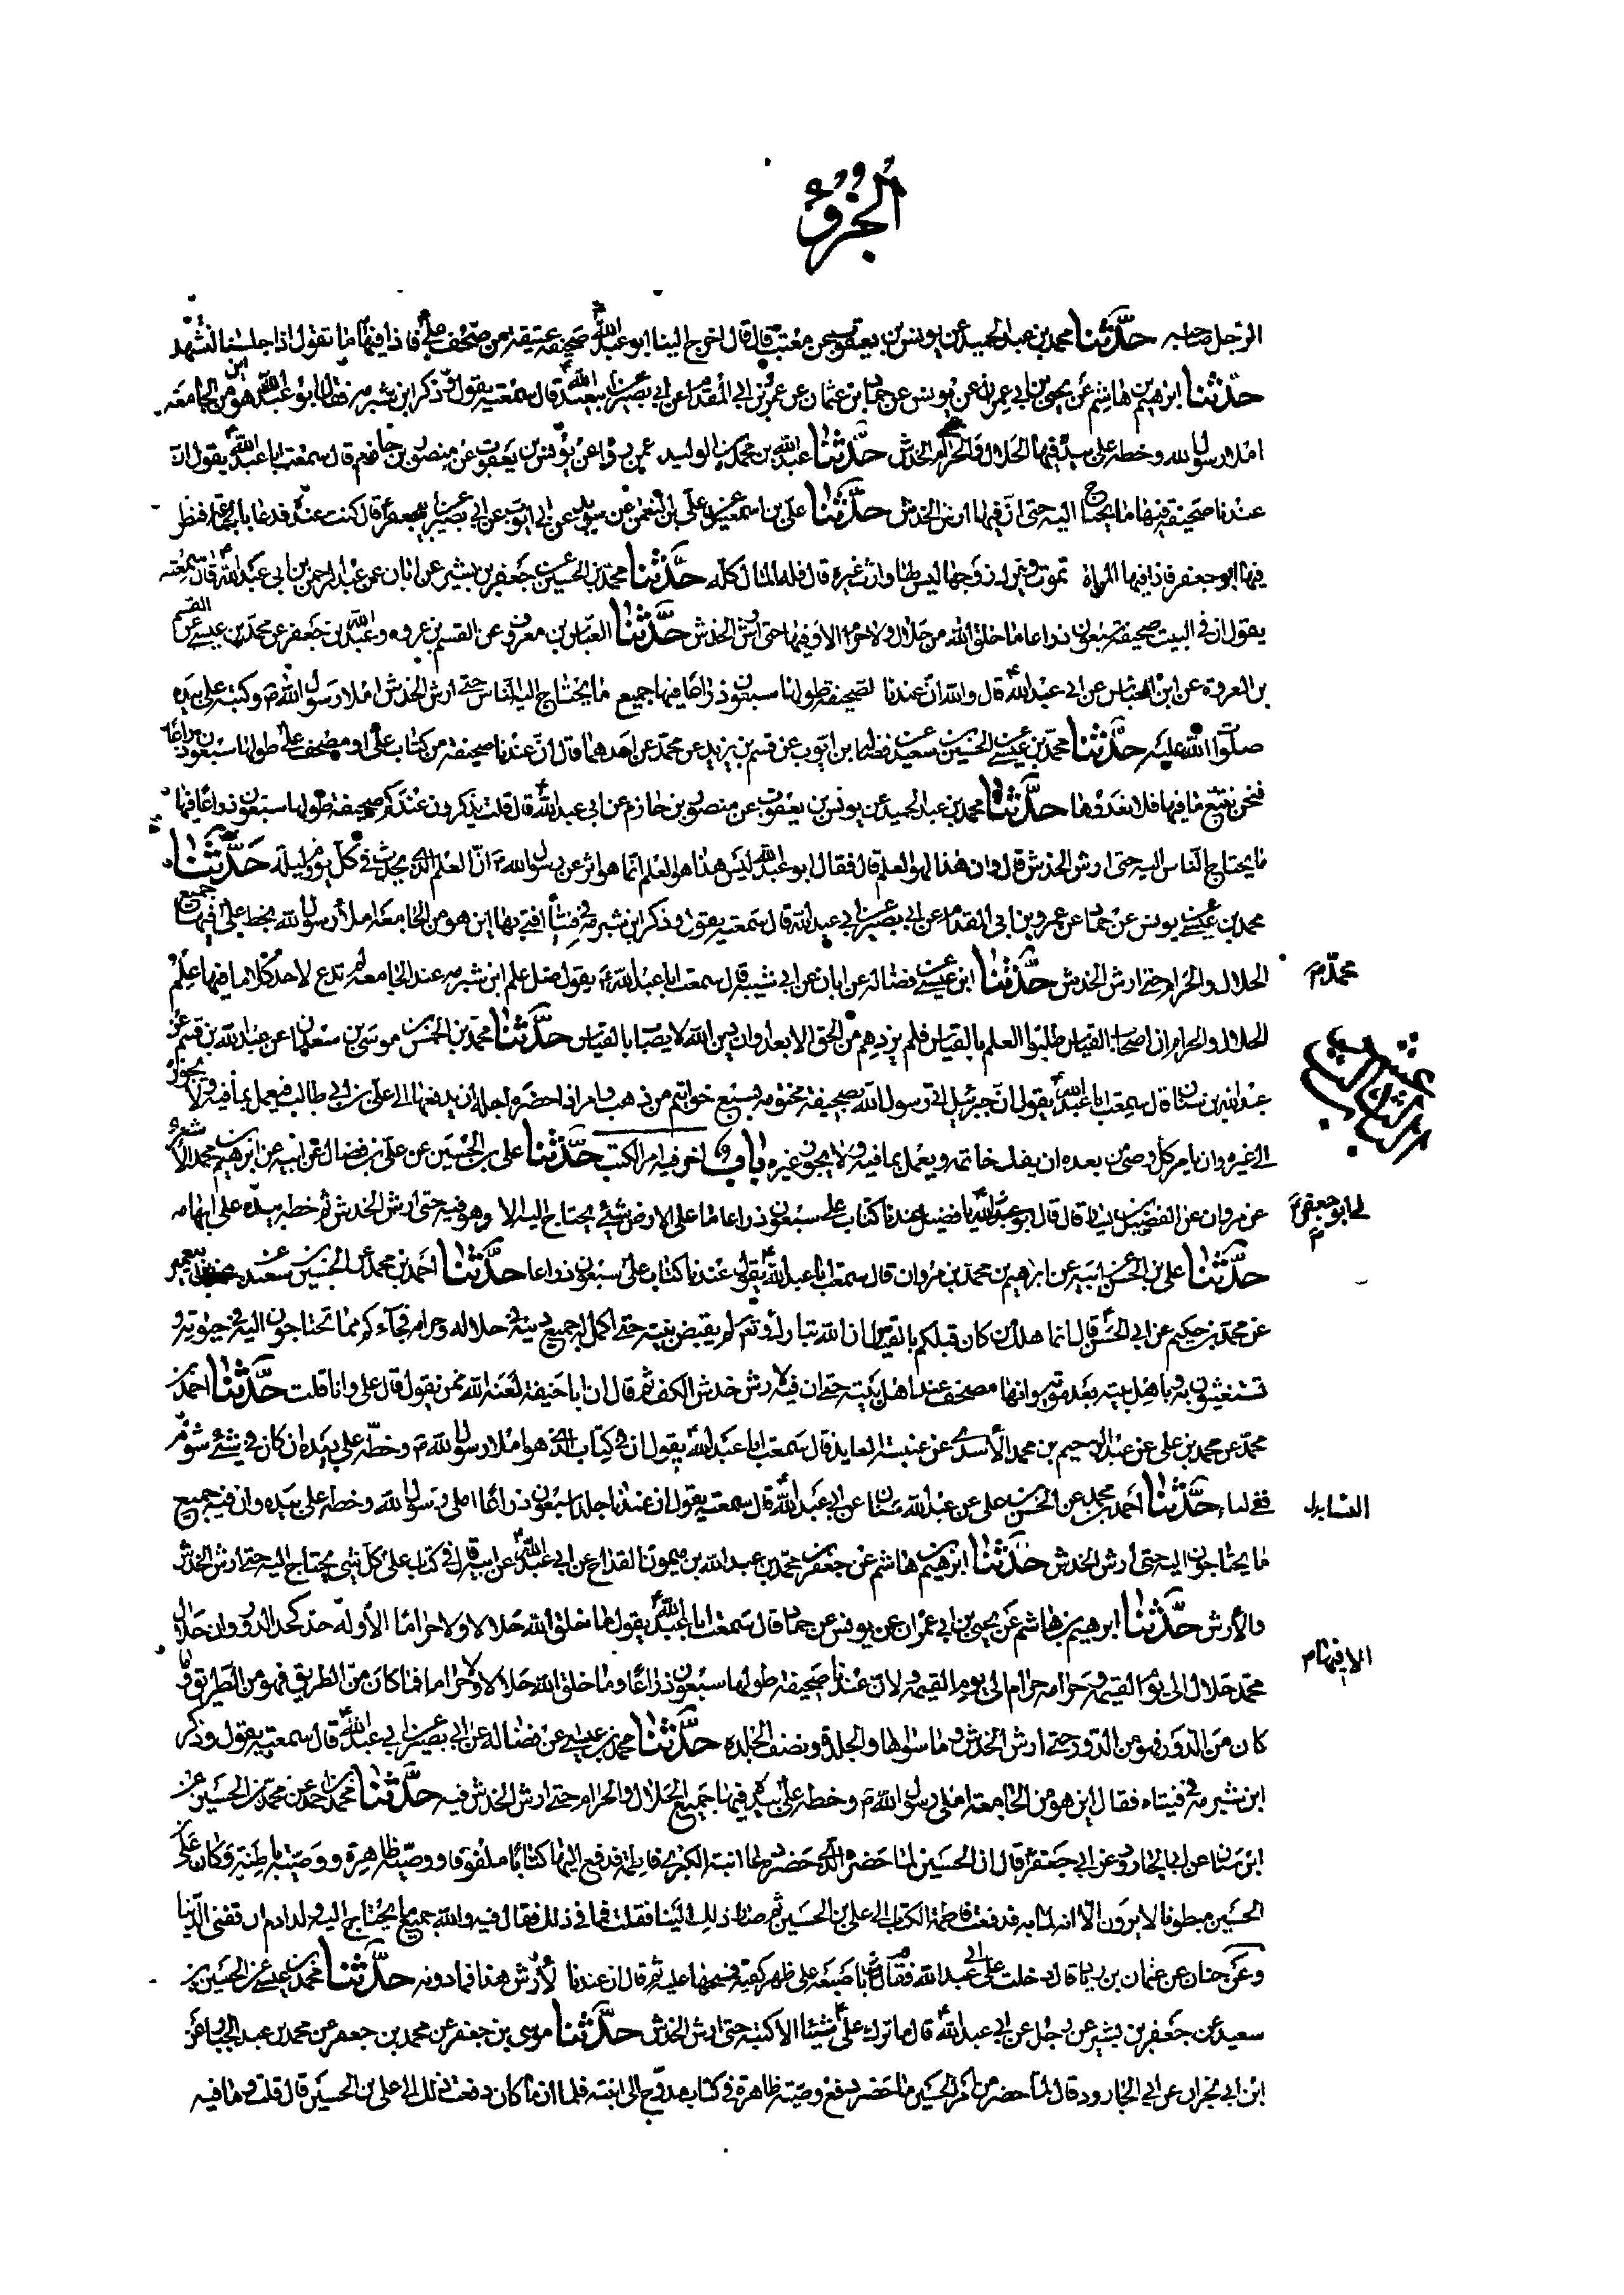 الجزؤ
الرجل صاحبه حدثنا محمد بن عبد الحميد عن يونس بن يعقوب عن معتب قال قال اخرج الينا ابو عبد الله صحيفة عتيقة من صحف علي فاذا فيها ما نقول اذا جلسنا لنشهد
حدثنا ابرهيم بن هاشم عن يحيى بن ابي عمران عن يونس عن حماد بن عثمان عن عمرو بن ابي المقدام عن ابي بصير عن ابي عبد الله قال سمعته يقول وذكر ابن شبرمه فقال ابو عبد الله اين هو من الجامعه
املا رسول الله وخطه علي بيده فيها الحلال والحرام حتى ارش الخدش حدثنا عبد الله بن محمد عن الوليد عمن رواه عن يونس بن يعقوب عن منصور بن حازم قال سمعت ابا عبد الله يقول ان
عندنا صحيفة فيها ما يحتاج اليه حتى ان فيها ارش الخدش حدثنا علي بن اسمعيل عن علي بن النعمن عن سويد عن ابي ايوب عن ابي بصير عن ابي جعفر قال كنت عنده فدعا بالجامعة فنظر
فيها ابو جعفر فاذا فيها المراة تموت وتترك زوجها ليس لها وارث غيره قال فله المال كله حدثنا محمد بن الحسين عن جعفر بن بشير عن ابان عن عبد الرحمن بن ابي عبد الله قال سمعته
يقول ان في البيت صحيفة سبعون ذراعا ما خلق الله من حلال ولا حرام الا وفيها حتى ارش الخدش حدثنا العباس بن معروف عن القسم بن عروه وعبد الله بن جعفر عن محمد بن عيسى عن القسم
بن العروة عن ابن العباس عن ابي عبد الله قال والله ان عندنا لصحيفة طولها سبعون ذراعا فيها جميع ما يحتاج اليه الناس حتى ارش الخدش املا رسول الله ص وكتبه علي بيده
صلوات الله عليه حدثنا محمد بن عيسى عن الحسين بن سعيد عن فضالة بن ايوب عن قسم بن بريد عن محمد عن احدهما قال ان عندنا صحيفة من كتاب علي او مصحف علي طولها سبعون ذراعا
فنحن نتبع ما فيها فلا نعدوها حدثنا محمد بن عبد الحميد عن يونس بن يعقوب عن منصور بن حازم عن ابي عبد الله قال قلت يذكرون عندكم صحيفة طولها سبعون ذراعا فيها
ما يحتاج الناس اليه حتى ارش الخدش قال وان هذا لهو العلم قال فقال ابو عبد الله ليس هذا هو العلم انما هو اثر عن رسول الله ص ان العلم الذي يحدث في كل يوم وليلة حدثنا
محمد بن عيسى عن يونس عن حماد عن عمرو بن ابي المقدام عن ابي بصير عن ابي عبد الله قال سمعته يقول وذكر ابن شبرمة في فتيا افتى بها اين هو من الجامعه املا رسول الله بخط علي فيها جميع
الحلال والحرام حتى ارش الخدش حدثنا ابن عيسى عن فضاله عن ابان عن ابي شيبه قال سمعت ابا عبد الله يقول ضل علم ابن شبرمه عند الجامعه لم تدع لاحد كلاما فيها علم
محمد ص
الحلال والحرام ان اصحاب القياس طلبوا العلم بالقياس فلم يزدهم من الحق الا بعدا وان دين الله لا يصاب بالقياس حدثنا محمد بن الحسين عن موسى بن سعدان عن عبد الله بن قسم عن
عبد الله بن سنان قال سمعت ابا عبد الله يقول ان جبرئيل اتى رسول الله بصحيفة مختومة بسبع خواتيم من ذهب وامر اذا حضره اجله ان يدفعها الى علي بن ابي طالب فيعمل بما فيه ولا يجوز
الى غيره وان يامر كل وصي من بعده ان يفك خاتمه ويعمل بما فيه ولا يجوز غيره باب اخر فيه امر الكتب حدثنا علي بن الحسين عن علي بن فضال عن ابيه عن ابرهيم بن محمد الاشعري
عن مروان عن الفضيل بن يسار قال قال ابو عبد الله يا فضيل عندنا كتاب علي سبعون ذراعا ما على الارض شئ يحتاج اليه الا وهو فيه حتى ارش الخدش ثم خطه بيده على ابهامه
لي ابو جعفر
حدثنا علي بن الحسن عن ابيه عن ابرهيم بن محمد عن مروان قال سمعت ابا عبد الله يقول عندنا كتاب علي سبعون ذراعا حدثنا احمد بن محمد عن الحسين بن سعيد عن بعض
عن محمد بن حكيم عن ابي الحسن قال انما هلك من كان قبلكم بالقياس ان الله تبارك وتعالى لم يقبض نبيه حتى اكمل له جميع دينه في حلاله وحرامه فجاءكم مما تحتاجون اليه في حيوته و
تستغيثون به وباهل بيته بعد موته وانها مصحف عند اهل بيته حتى ان فيه لارش خدش الكف ثم قال ان ابا حنيفة لعنه الله ممن يقول قال علي وانا قلت حدثنا احمد بن
محمد عن محمد بن علي عن عبد الرحيم بن محمد الاسدي عن عنبسة العابد قال سمعت ابا عبد الله يقول ان في كتاب الذي هو املا رسول الله ص وخطه علي بيده ان كان في شئ شوم
ففي النساء حدثنا احمد بن محمد عن الحسن بن علي عن عبد الله بن سنان عن ابي عبد الله قال سمعته يقول ان عندنا جلدا سبعون ذراعا املى رسول الله وخطه علي بيده وان فيه جميع
ما يحتاجون اليه حتى ارش الخدش حدثنا ابرهيم بن هاشم عن جعفر بن محمد بن عبد الله بن ميمون القداح عن ابي عبد الله عن ابيه قال في كتاب علي كل شئ يحتاج اليه حتى ارش الخدش
والارش حدثنا ابرهيم بن هاشم عن يحيى بن ابي عمران عن يونس عن حماد قال سمعت ابا عبد الله يقول ما خلق الله حلالا ولا حراما الا وله حد كحد الدور وان حلال
محمد حلال الى يوم القيمة وحرامه حرام الى يوم القيمة ولان عندنا صحيفة طولها سبعون ذراعا وما خلق الله حلالا ولا حراما فما كان من الطريق فهو من الطريق وما
كان من الدور فهو من الدور حتى ارش الخدش وما سواها والجلدة ونصف الجلده حدثنا محمد بن عيسى عن فضاله عن ابي بصير عن ابي عبد الله قال سمعته يقول وذكر
ابن شبرمه في فتياه فقال اين هو من الجامعة املى رسول الله ص وخطه علي بيده فيها جميع الحلال والحرام حتى ارش الخدش فيه حدثنا محمد بن احمد عن محمد بن الحسين عن
ابن سنان عن ابي الجارود عن ابي جعفر قال ان الحسين لما حضره الذي حضره دعا ابنته الكبرى فاطمة فدفع اليها كتابا ملفوفا ووصية ظاهرة ووصية باطنة وكان علي بن
الحسين مبطونا لا يرون الا انه لما به فدفعت فاطمة الكتاب الى علي بن الحسين ثم صار ذلك الينا فقلت فما في ذلك فقال فيه والله جميع ما يحتاج اليه ولد ادم الى ان تفنى الدنيا
وعن حنان عن عثمان بن زياد قال دخلت على ابي عبد الله فقال باصبعه على ظهر كفه فمسحها عليه ثم قال ان عندنا لارش هذا فما دونه حدثنا محمد بن عيسى عن الحسين بن
سعيد عن جعفر بن بشير عن رجل عن ابي عبد الله قال ما ترك علي شيئا الا كتبه حتى ارش الخدش حدثنا موسى بن جعفر عن محمد بن جعفر عن محمد بن عبد الجبار عن
ابن ابي نجران عن ابي الجارود قال لما حضر من امر الحسين ما حضر دفع وصيته ظاهرة في كتاب مدرج الى ابنته فلما ان ما كان دفعت ذلك الى علي بن الحسين قال قلت وما فيه